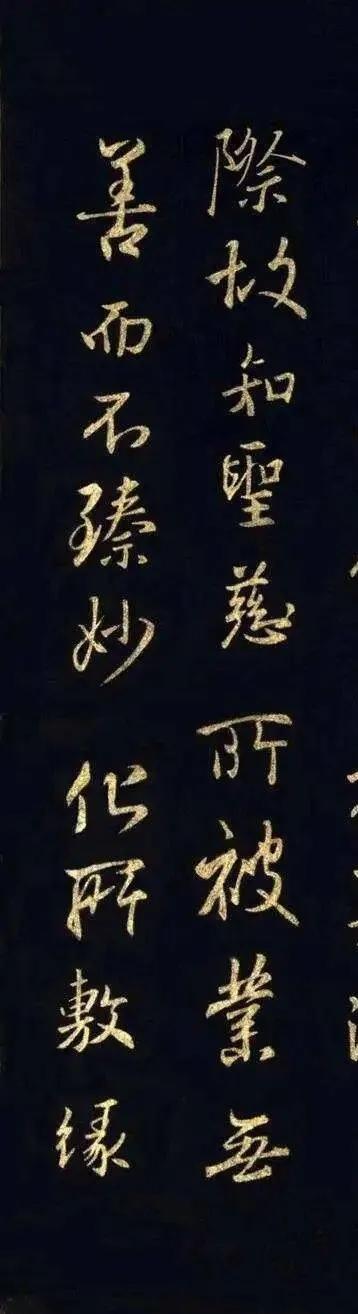 際故知聖慈所被業無
善而不臻妙化所敷緣